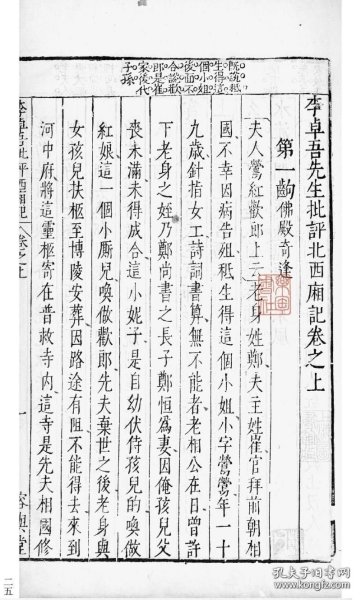 既說秪
生得這
個小姐
後面不
合說歡
郎是崔
家後代
子孫
李卓吾先生批評北西廂記卷之上
第一齣 佛殿奇逢
夫人鶯紅歡郎上云老身姓鄭夫主姓崔官拜前朝相
國不幸因病告殂秪生得這個小姐小字鶯鶯年一十
九歲針指女工詩詞書算無不能者老相公在日曾許
下老身之姪乃鄭尚書之長子鄭恒為妻因俺孩兒父
喪未滿未得成合這小妮子是自幼伏侍孩兒的喚做
紅娘這一個小厮兒喚做歡郎先夫棄世之後老身與
女孩兒扶柩至博陵安葬因路途有阻不能得去來到
河中府將這靈柩寄在普救寺內這寺是先夫相國修
李卓吾批評西廂記 卷之上 一 容與堂
二五
孔夫子旧书网